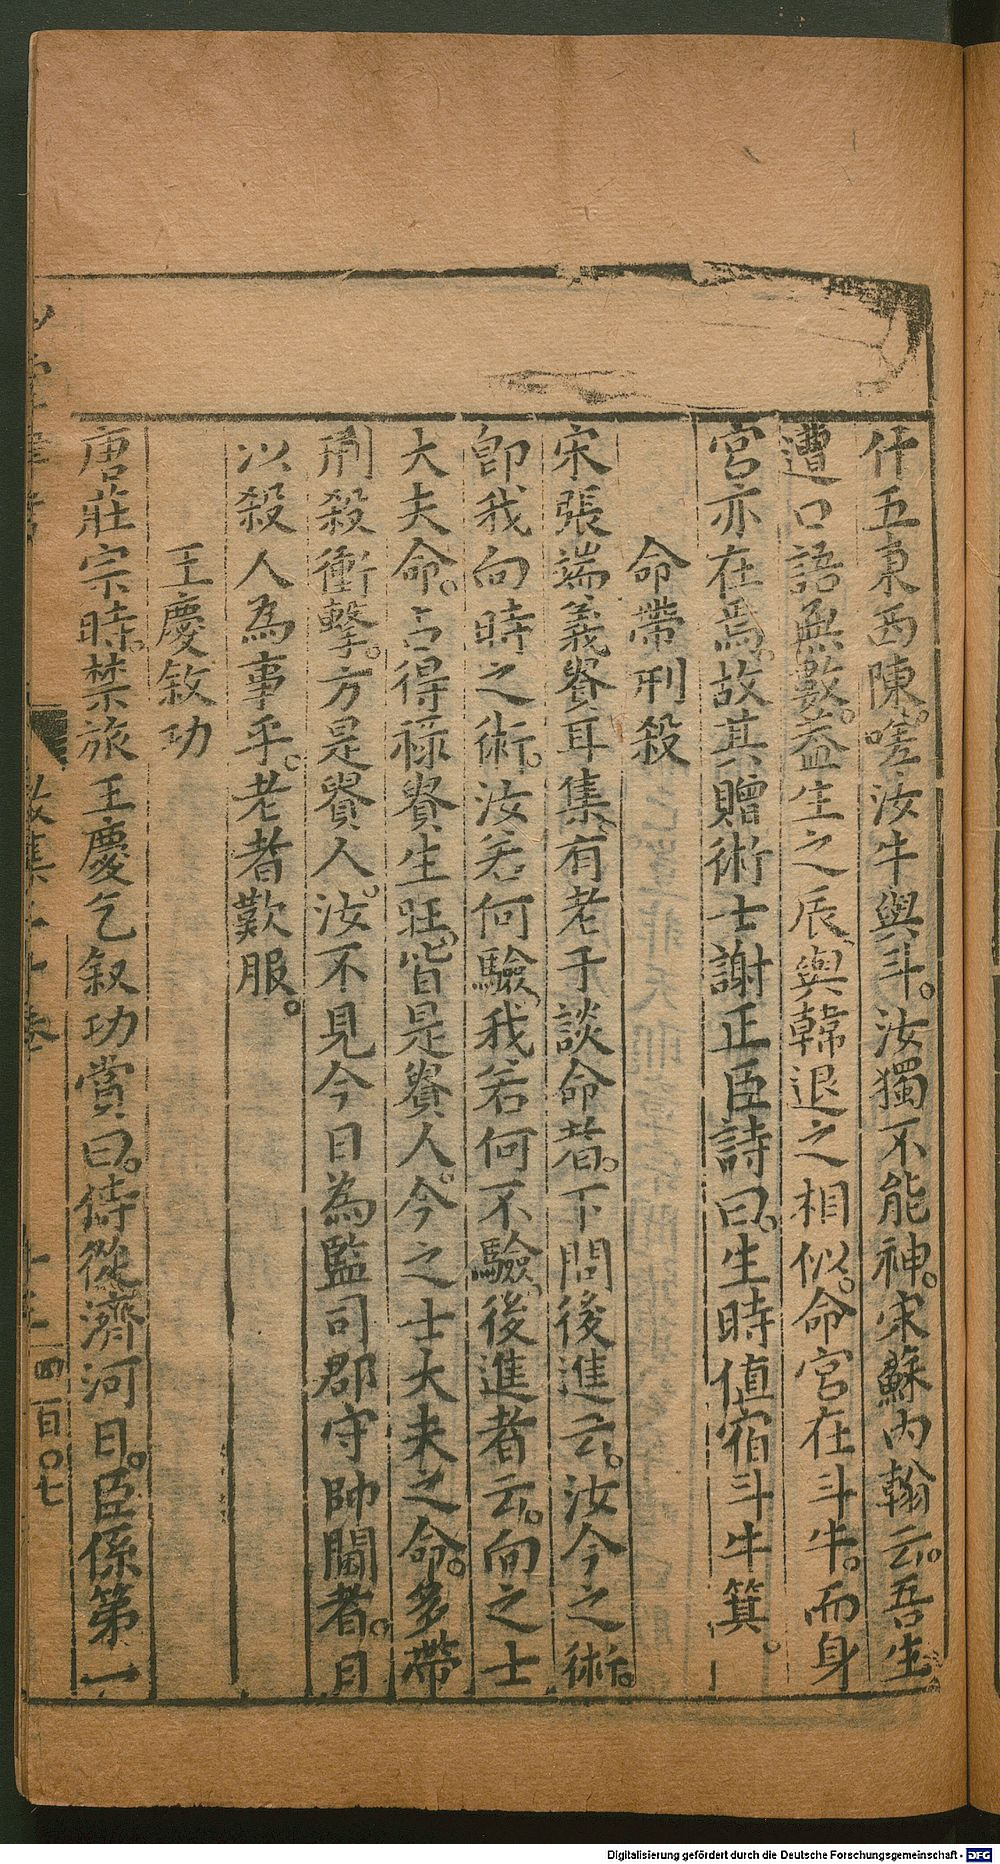 什五東西陳。嗟汝牛與斗。汝獨不能神。宋蘇内翰云。吾生
遭口語無數。蓋生之辰、與韓退之相似。命宮在斗牛。而身
宮亦在焉。故其贈術士謝正臣詩曰。生時値宿斗牛箕。
命帶刑殺
宋張端義貴耳集、有老于談命者。下問後進云。汝今之術。
卽我向時之術。汝若何驗、我若何不驗、後進者云。向之士
大夫命。占得祿貴生旺。皆是貴人。今之士大夫之命。多帶
刑殺衝擊。方是貴人。汝不見今日為監司郡守帥閫者。日
以殺人為事乎。老者歎服。
王慶敘功
唐莊宗時。禁旅王慶乞叙功賞曰。侍從濟河日。臣係第一
四百〇七
Digitalisierung gefördert durch die Deutsche Forschungsgemeinschaft - DFG